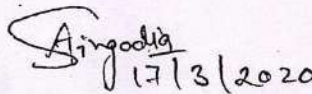 Singodia
17/3/2020